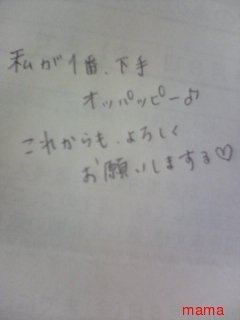 私が1番、下手
オッパッピー♪
これからも、よろしく
お願いしまする♡
mama